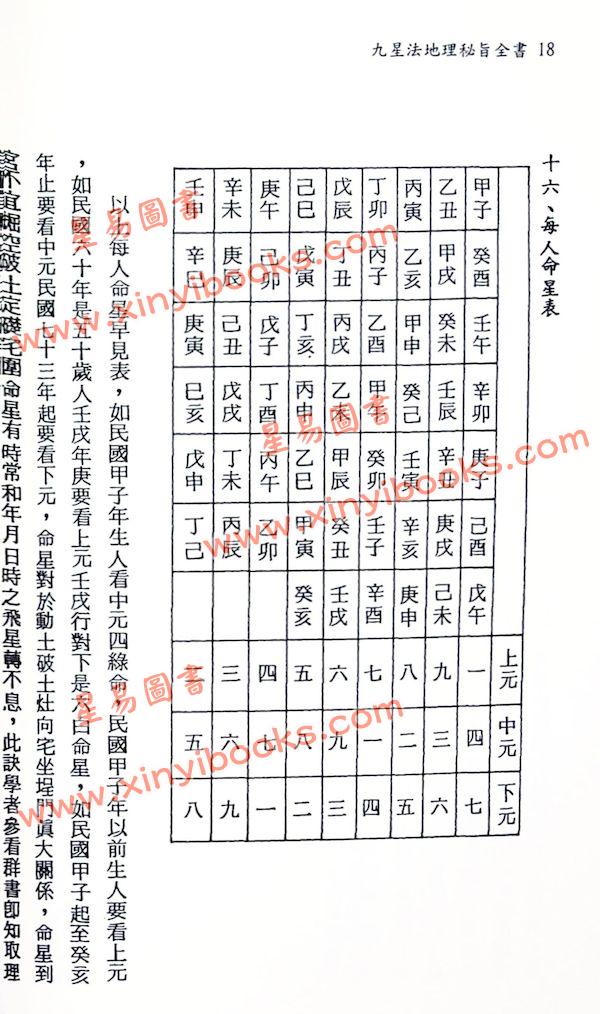 九星法地理秘旨全書 18
十六、每人命星表
上元 中元 下元
甲子 癸酉 壬午 辛卯 庚子 己酉 戊午 一 四 七
乙丑 甲戌 癸未 壬辰 辛丑 庚戌 己未 九 三 六
丙寅 乙亥 甲申 癸己 壬寅 辛亥 庚申 八 二 五
丁卯 丙子 乙酉 甲午 癸卯 壬子 辛酉 七 一 四
戊辰 丁丑 丙戌 乙未 甲辰 癸丑 壬戌 六 九 三
己巳 戊寅 丁亥 丙申 乙巳 甲寅 癸亥 五 八 二
庚午 己卯 戊子 丁酉 丙午 乙卯 四 七 一
辛未 庚辰 己丑 戊戌 丁未 丙辰 三 六 九
壬申 辛巳 庚寅 巳亥 戊申 丁己 二 五 八
以上每人命星早見表，如民國甲子年生人看中元四綠命，民國甲子年以前生人要看上元
，如民國六十年是五十歲人壬戌年庚要看上元壬戌行對下是六白命星，如民國甲子起至癸亥
年止要看中元民國七十三年起要看下元，命星對於動土破土灶向宅坐埕門眞大關係，命星到
宮不宜掘空破土定礎毛圍命星有時常和年月日時之飛星轉不息，此訣學者參看群書卽知取理
星易圖書
www.xinyibooks.com
星易圖書
www.xinyibooks.com
星易圖書
www.xinyibooks.com